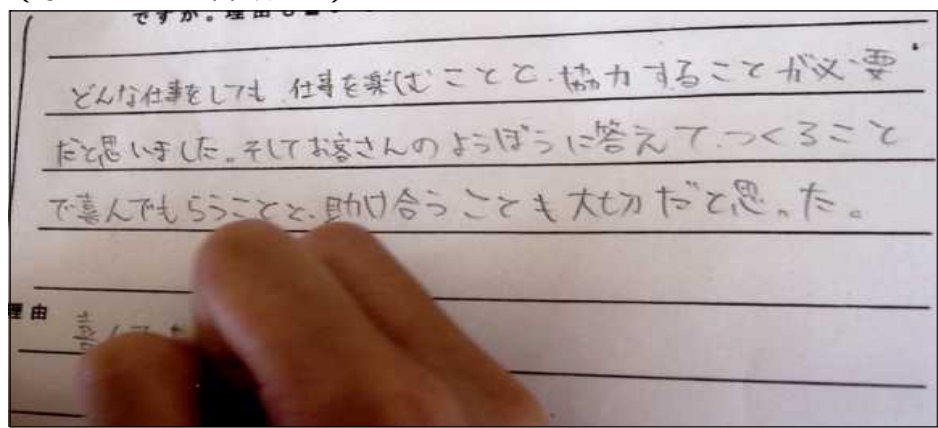 ですか。理由も書
どんな仕事をしても、仕事を楽しむことと、協力することが必要
だと思いました。そしてお客さんのようぼうに答えて、つくること
で喜んでもらうことと、助け合うことも大切だと思った。
理由
喜んでも